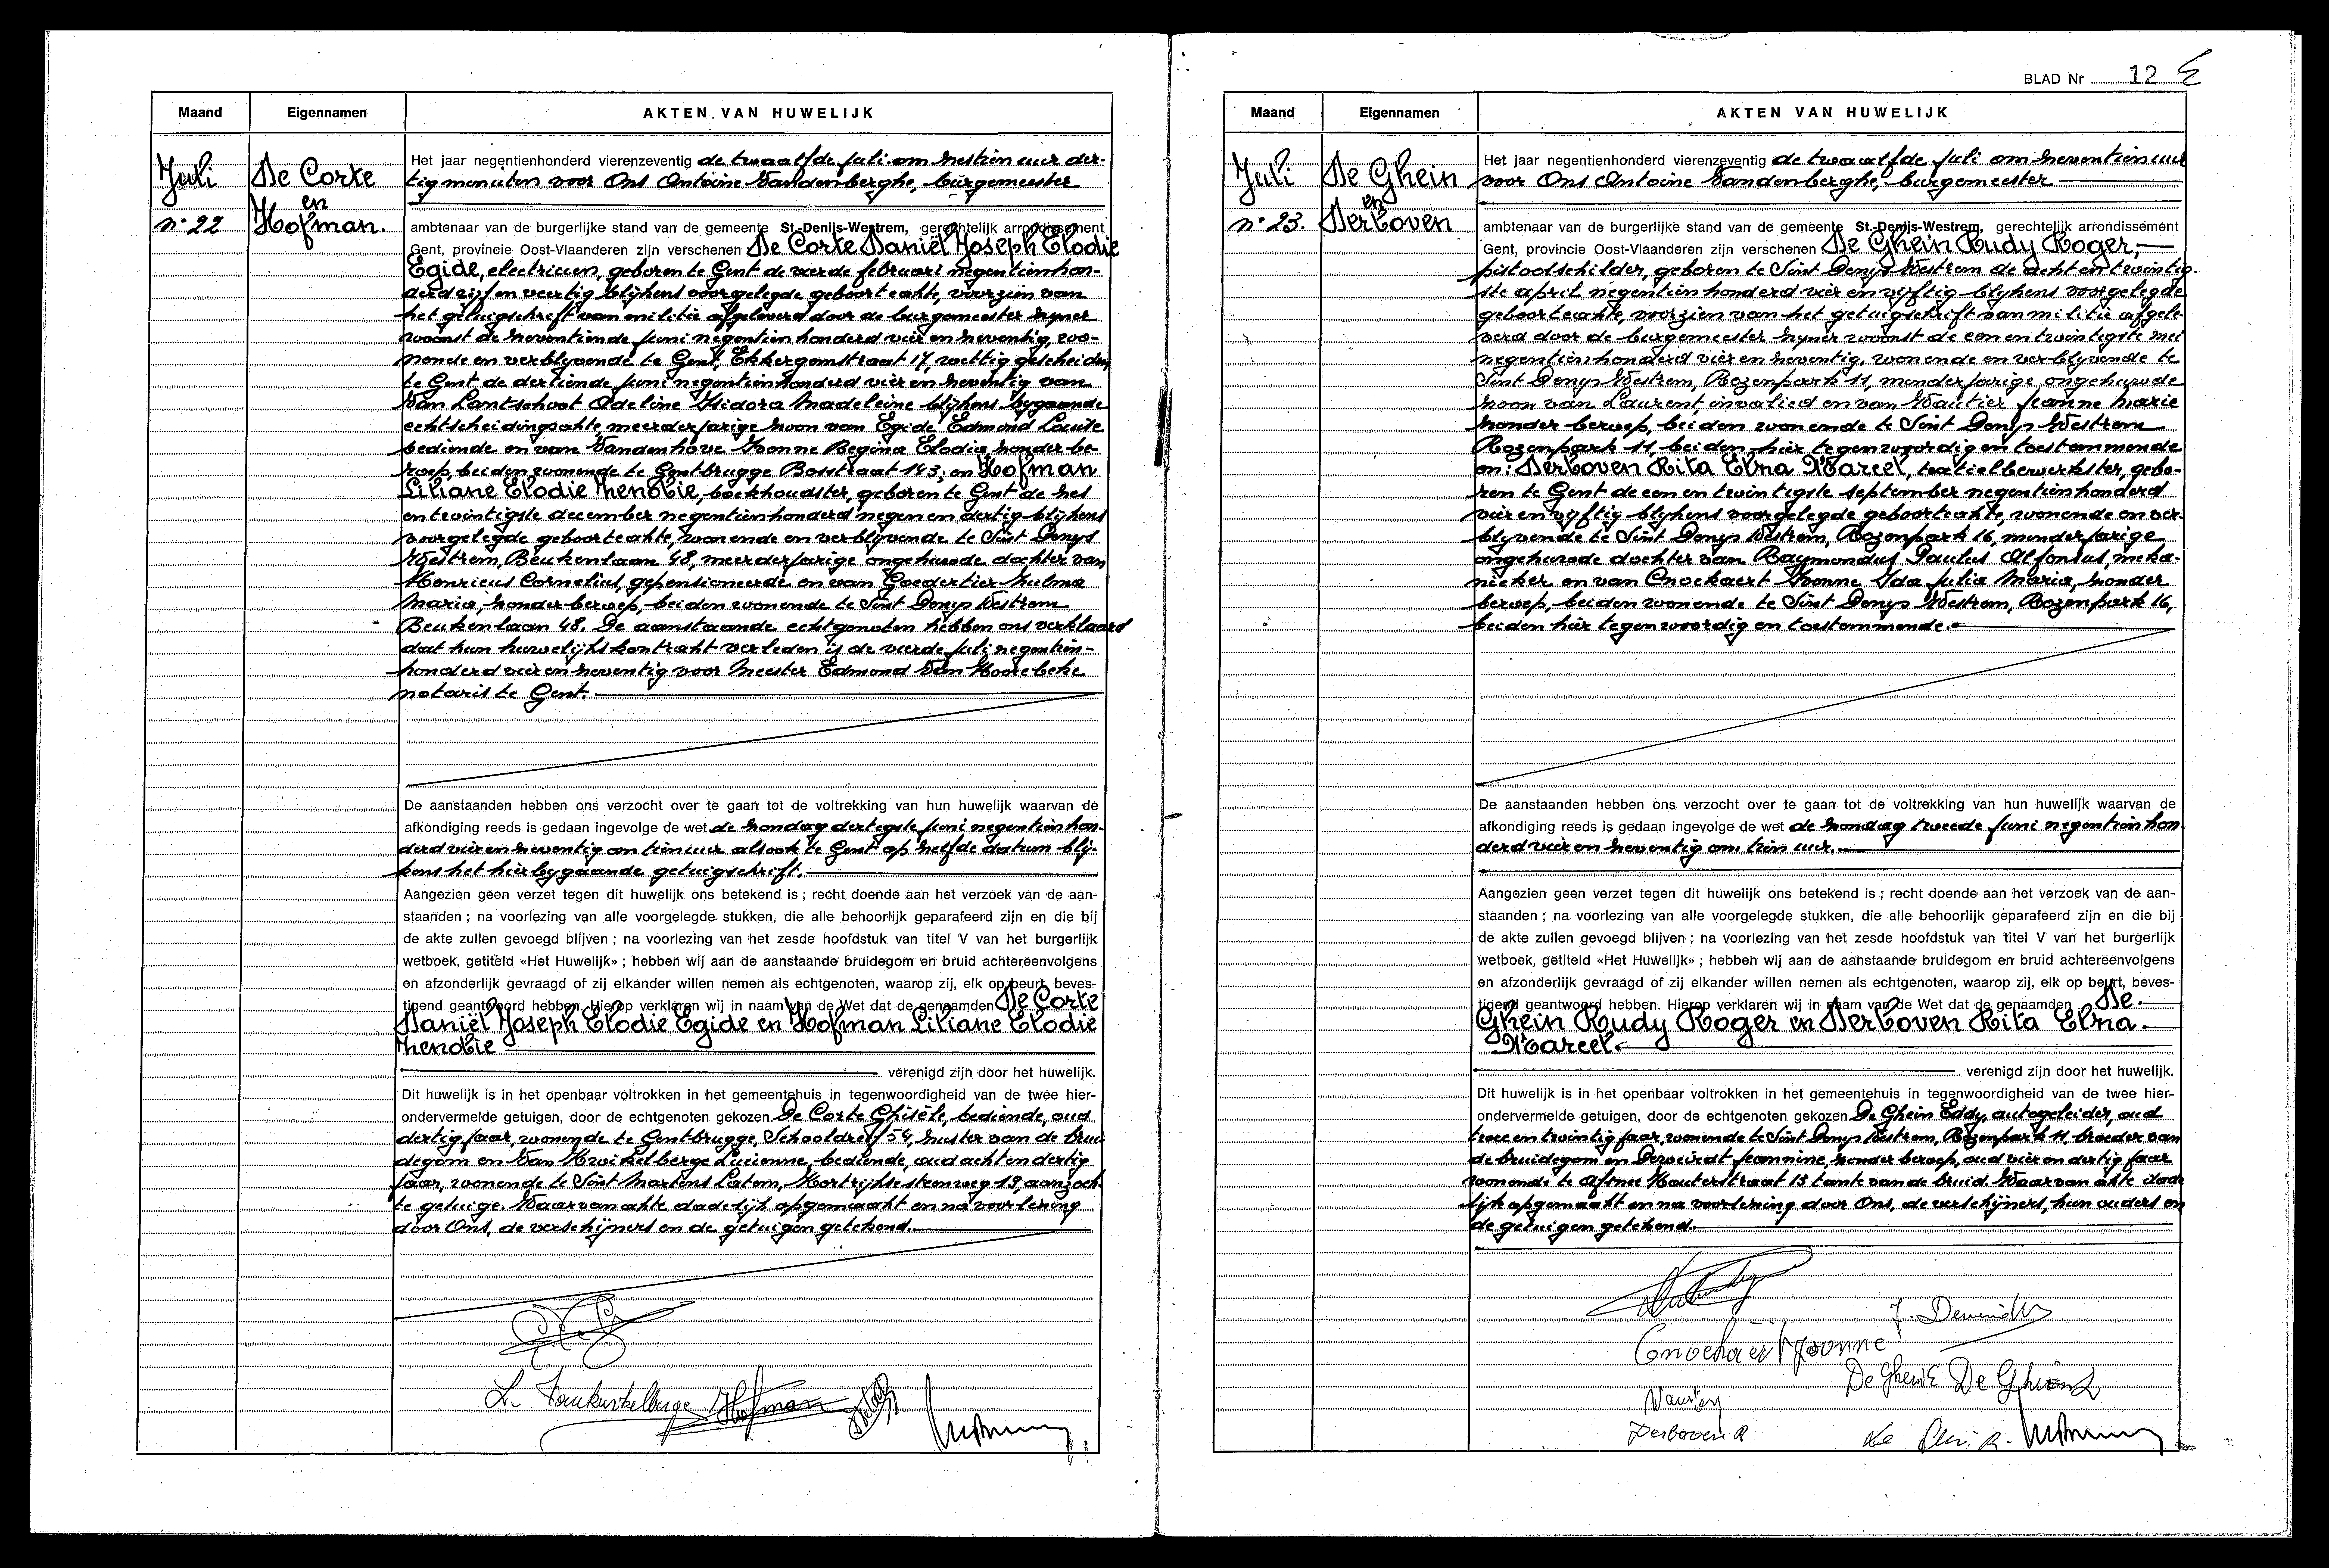 Maand Eigennamen AKTEN VAN HUWELIJK
Juli
n° 22
De Corte
en
Hofman.
Het jaar negentienhonderd vierenzeventig de twaalfde juli om zestien uur der-
tig minuten voor Ons Antoine Vandenberghe, burgemeester
ambtenaar van de burgerlijke stand van de gemeente St.-Denijs-Westrem, gerechtelijk arrondissement
Gent, provincie Oost-Vlaanderen zijn verschenen De Corte Daniël Joseph Elodie
Egide, electricien, geboren te Gent de vierde februari negentienhon-
derd vijf en veertig blijkens voorgelegde geboorteakte, voorzien van
het getuigschrift van militie afgeleverd door de burgemeester zyner
woonst de zeventiende juni negentienhonderd vier en zeventig, wo-
nende en verblyvende te Gent, Ekkergemstraat 17, wettig gescheiden
te Gent de dertiende juni negentienhonderd vier en zeventig van
Van Lantschoot Odeline Isidora Madeleine blijkens bygaande
echtscheidingsakte, meerderjarige zoon van Egide Edmond Louise
bediende en van Vandenhove Ivonne Regina Elodia, zonder be-
roep, beiden wonende te Gentbrugge Bosstraat 143; en Hofman
Liliane Elodie Zenobie, boekhoudster, geboren te Gent de zes
en twintigste december negentienhonderd negen en dertig blijkens
voorgelegde geboorteakte, wonende en verblijvende te Sint Denys
Westrem, Beukenlaan 48, meerderjarige ongehuwde dochter van
Henricus Cornelius, gepensioneerde en van Goedertier Zulma
Maria, zonder beroep, beiden wonende te Sint Denys Westrem
Beukenlaan 48. De aanstaande echtgenoten hebben ons verklaard
dat hun huwelijkskontrakt verleden is de vierde juli negentien-
honderd vier en zeventig voor Meester Edmond Van Hoorebeke
notaris te Gent.
De aanstaanden hebben ons verzocht over te gaan tot de voltrekking van hun huwelijk waarvan de
afkondiging reeds is gedaan ingevolge de wet de zondag dertigste juni negentienhon-
derd vier en zeventig om tien uur alsook te Gent op zelfde datum blij-
kens het hierbygaande getuigschrift.
Aangezien geen verzet tegen dit huwelijk ons betekend is ; recht doende aan het verzoek van de aan-
staanden ; na voorlezing van alle voorgelegde stukken, die alle behoorlijk geparafeerd zijn en die bij
de akte zullen gevoegd blijven ; na voorlezing van het zesde hoofdstuk van titel V van het burgerlijk
wetboek, getiteld «Het Huwelijk» ; hebben wij aan de aanstaande bruidegom en bruid achtereenvolgens
en afzonderlijk gevraagd of zij elkander willen nemen als echtgenoten, waarop zij, elk op beurt, beves-
tigend geantwoord hebben. Hierop verklaren wij in naam van de Wet dat de genaamden De Corte
Daniël Joseph Elodie Egide en Hofman Liliane Elodie
Zenobie
verenigd zijn door het huwelijk.
Dit huwelijk is in het openbaar voltrokken in het gemeentehuis in tegenwoordigheid van de twee hier-
ondervermelde getuigen, door de echtgenoten gekozen De Corte Ghisèle, bediende, oud
dertig jaar, wonende te Gentbrugge, Schooldreef 54, zuster van de brui-
degom en Van Kwikelberge Lucienne, bediende, oud acht en dertig
jaar, wonende te Sint Martens Latem, Kortrijksesteenweg 13, aangezoch-
te getuige. Waarvan akte dadelijk opgemaakt en na voorlezing
door Ons, de verschijners en de getuigen getekend.
Hofman
BLAD Nr 12
Maand Eigennamen AKTEN VAN HUWELIJK
Juli
n° 23.
De Ghein
en
Derboven
Het jaar negentienhonderd vierenzeventig de twaalfde juli om zeventien uur
voor Ons Antoine Vandenberghe, burgemeester
ambtenaar van de burgerlijke stand van de gemeente St.-Denijs-Westrem, gerechtelijk arrondissement
Gent, provincie Oost-Vlaanderen zijn verschenen De Ghein Rudy Roger,
pistoolschilder, geboren te Sint Denys Westrem de acht en twintig-
ste april negentienhonderd vier en vyftig blykens voorgelegde
geboorteakte, voorzien van het getuigschrift van militie afgele-
verd door de burgemeester zyner woonst de een en twintigste mei
negentienhonderd vier en zeventig, wonende en verblyvende te
Sint Denys Westrem, Rozenpark 11, minderjarige ongehuwde
zoon van Laurent, invalied en van Wautier Jeanne Marie
zonder beroep, beiden wonende te Sint Denys Westrem
Rozenpark 11, beiden hier tegenwoordig en toestemmende
en: Derboven Rita Elna Marcel, textielbewerkster, gebo-
ren te Gent de een en twintigste september negentienhonderd
vier en vyftig blykens voorgelegde geboorteakte, wonende en ver-
blyvende te Sint Denys Westrem, Rozenpark 16, minderjarige
ongehuwde dochter van Raymondus Paulus Alfonsus, meka-
nieker en van Cnockaert Yvonne Ida Julia Maria, zonder
beroep, beiden wonende te Sint Denys Westrem, Rozenpark 16,
beiden hier tegenwoordig en toestemmende.
De aanstaanden hebben ons verzocht over te gaan tot de voltrekking van hun huwelijk waarvan de
afkondiging reeds is gedaan ingevolge de wet de zondag tweede juni negentienhon
derd vier en zeventig om tien uur.
Aangezien geen verzet tegen dit huwelijk ons betekend is ; recht doende aan het verzoek van de aan-
staanden ; na voorlezing van alle voorgelegde stukken, die alle behoorlijk geparafeerd zijn en die bij
de akte zullen gevoegd blijven ; na voorlezing van het zesde hoofdstuk van titel V van het burgerlijk
wetboek, getiteld «Het Huwelijk» ; hebben wij aan de aanstaande bruidegom en bruid achtereenvolgens
en afzonderlijk gevraagd of zij elkander willen nemen als echtgenoten, waarop zij, elk op beurt, beves-
tigend geantwoord hebben. Hierop verklaren wij in naam van de Wet dat de genaamden De
Ghein Rudy Roger en Derboven Rita Elna
Marcel.
verenigd zijn door het huwelijk.
Dit huwelijk is in het openbaar voltrokken in het gemeentehuis in tegenwoordigheid van de twee hier-
ondervermelde getuigen, door de echtgenoten gekozen De Ghein Eddy, autogeleider, oud
twee en twintig jaar, wonende te Sint Denys Westrem, Rozenpark 11, broeder van
de bruidegom en Jeannine, zonder beroep, oud vier en dertig jaar
wonende te Afsnee Houterstraat 13 tante van de bruid. Waarvan akte dade
lijk opgemaakt en na voorlezing door Ons, de verschijners, hun ouders en
de getuigen getekend.
Cnockaert Yvonne
De Ghein E
Derboven R